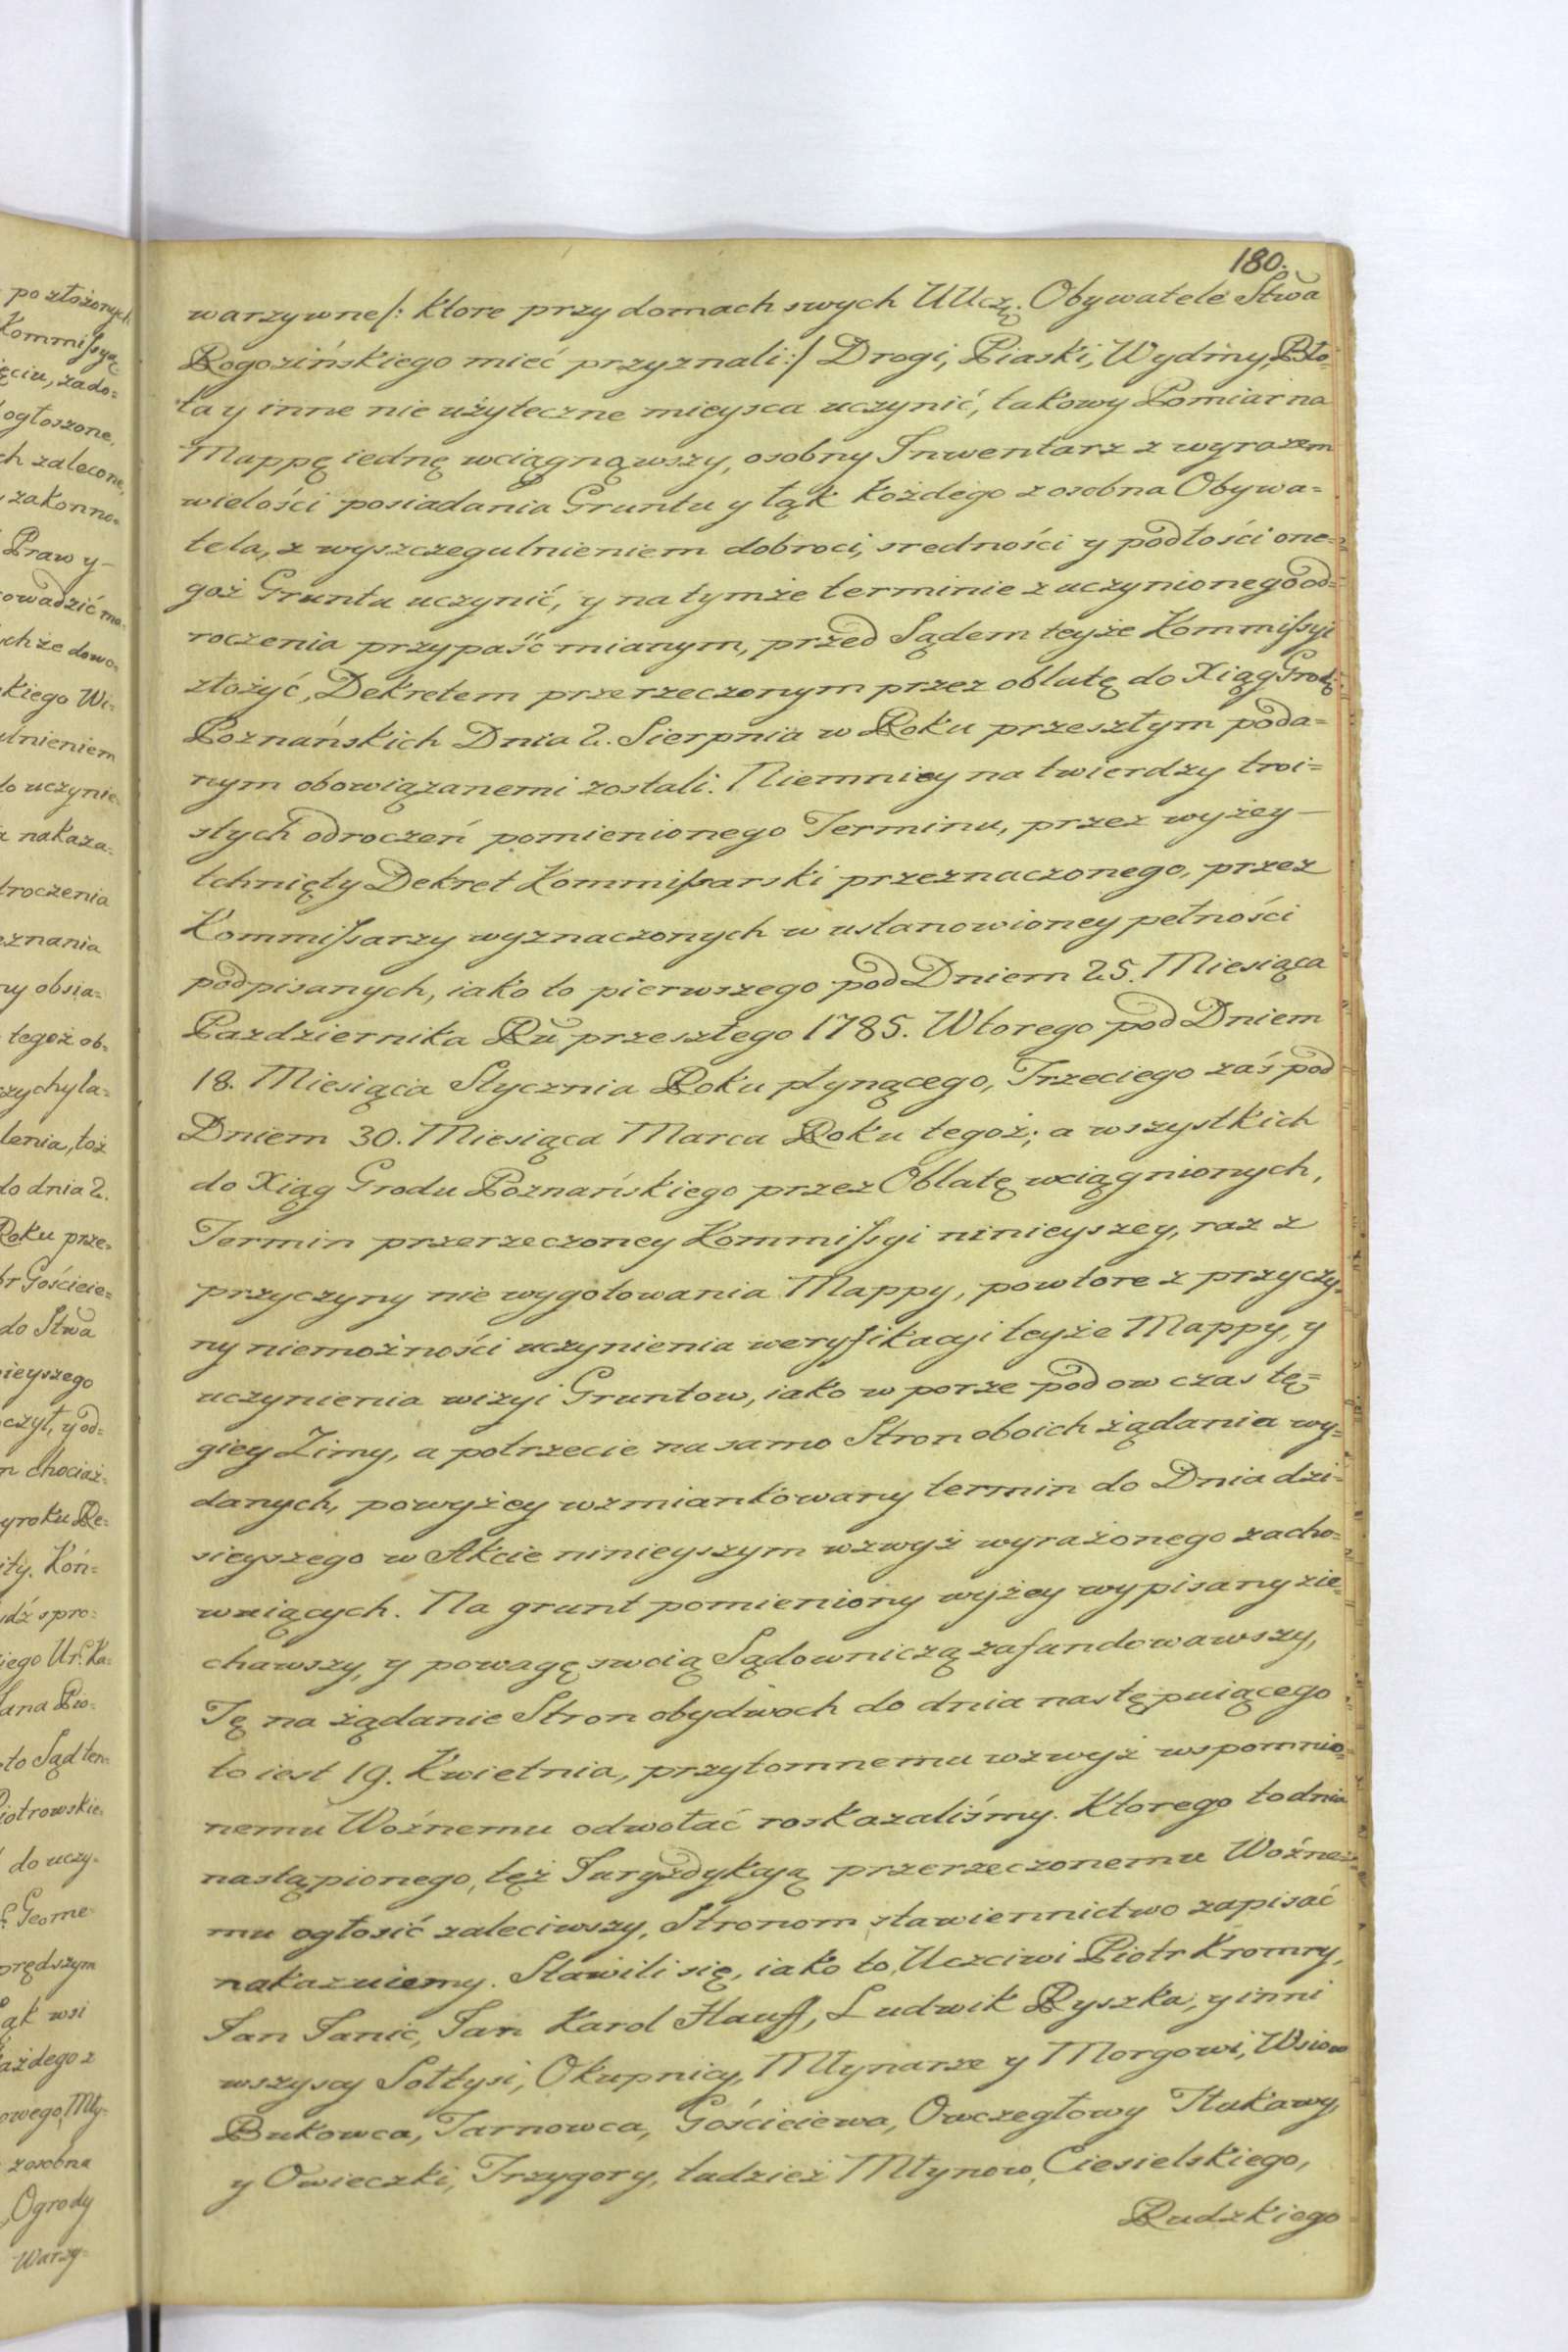 po złożonych
Kommissyą
ęciu, zado=
ogłoszone,
ch zalecone,
zakonno=
Praw y
owadzić ma=
ychże dowo=
kiego Wi=
ulnieniem
do uczynie=
a nakaza=
droczenia
znania
ny obsia=
tegoż ob=
zychyla=
lenia, toż
do dnia 2.
Roku prze=
Gościeie=
do Stwa
ieyszego
czył, y od=
m chociaż=
yroku De=
ity. Koń=
idź spro=
iego Ur: Ka=
ana Pio=
to Sąd ten=
Piotrowskie=
do uczy=
Geome=
prędszym
ąk wsi
ażdego z
owego Mły=
zosobna
Ogrody
Warzy=
180.
warzywne/: ktore przy domach swych UUczę: Obywatele Stwa
Rogozińskiego mieć przyznali:/ Drogi, Piaski, Wydmy, Bło=
ta y inne nie użyteczne mieysca uczynić, takowy Pomiar na
Mappę iednę wciągnąwszy, osobny Inwentarz z wyrazem
wielości posiadania Gruntu y łąk każdego z osobna Obywa=
tela, z wyszczegulnieniem dobroci, sredności y podłości one=
goż Gruntu uczynić, y na tymże terminie z uczynionego od=
roczenia przypaść mianym, przed Sądem teyże Kommissyi
złożyć, Dekretem przerzeczonym przez oblatę do Xiąg Grodz:
Poznańskich Dnia 2. Sierpnia w Roku przeszłym poda=
nym obowiązanemi zostali. Niemniey na twierdzy troi=
stych odroczeń pomienionego Terminu, przez wyżey
tchnięty Dekret Kommissarski przeznaczonego, przez
Kommissarzy wyznaczonych w ustanowioney pełności
podpisanych, iako to pierwszego pod Dniem 25. Miesiąca
Pazdziernika Ru przeszłego 1785. Wtorego pod Dniem
18. Miesiąca Stycznia Roku płynącego, Trzeciego zaś pod
Dniem 30. Miesiąca Marca Roku tegoż; a wszystkich
do Xiąg Grodu Poznańskiego przez Oblatę wciągnionych,
Termin przerzeczoney Kommissyi ninieyszey, raz z
przyczyny nie wygotowania Mappy, powtore z przyczy=
ny niemożności uczynienia weryfikacyi teyże Mappy, y
uczynienia wizyi Gruntow, iako w porze pod ow czas tę=
giey Zimy, a potrzecie na samo Stron oboich żądania wy=
danych, powyżey wzmiankowany termin do Dnia dzi=
sieyszego w Akcie ninieyszym wzwyż wyrażonego zacho=
wuiących. Na grunt pomieniony wyżey wypisany zie=
chawszy, y powagę swoią Sądowniczą zafundowawszy,
Tę na żądanie Stron obydwoch do dnia następuiącego
to iest 19. Kwietnia, przytomnemu wzwyż wspomnio=
nemu Woźnemu odwołać roskazaliśmy. Ktorego to dnia
nastąpionego, tęż Juryzdykcyą przerzeczonemu Woźne=
mu ogłosić zaleciwszy, Stronom stawiennictwo zapisać
nakazuiemy. Stawili się, iako to, Uczciwi Piotr Kromry,
Jan Janic, Jan Karol Hauff, Ludwik Ryszka, y inni
wszyscy Sołtysi, Okupnicy, Młynarze y Morgowi, Wsiow
Bukowca, Tarnowca, Gościeiewa, Owczegłowy Tłukawy,
y Owieczki, Trzygory, tudzież Młynow, Ciesielskiego,
Rudzkiego